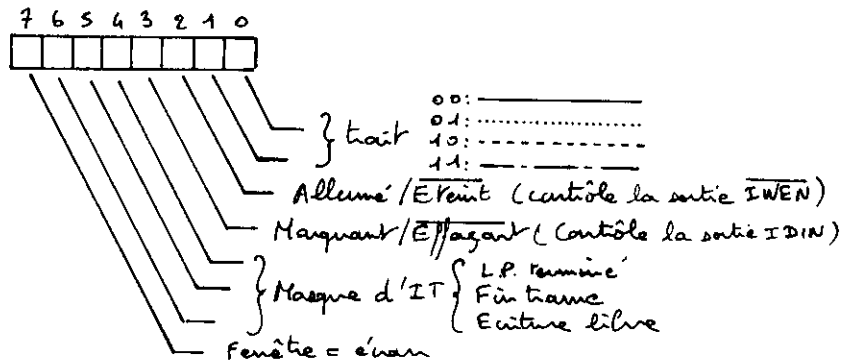 7 6 5 4 3 2 1 0
00:
} trait 01:
10:
11:
Allumé/Eteint (contrôle la sortie IWEN)
Marquant/Effaçant (Contrôle la sortie IDIN)
} Masque d'IT { L.P. terminé
Fin trame
Ecriture libre
Fenêtre = écran